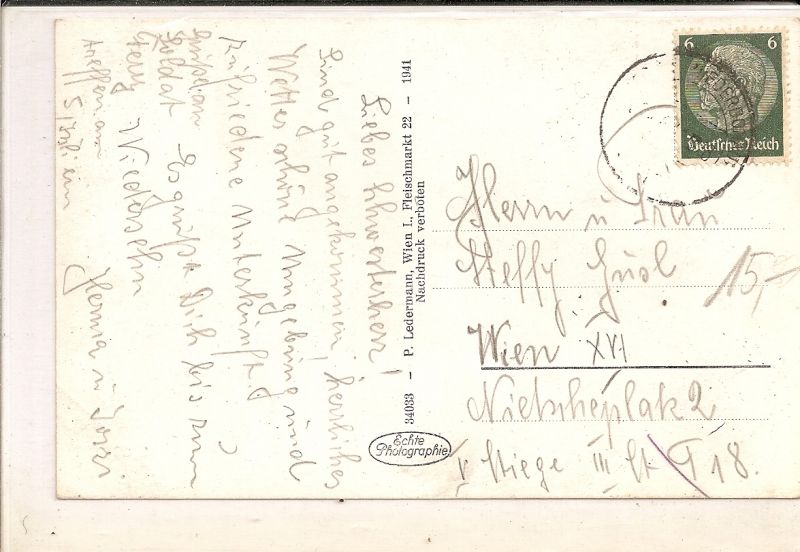 Liebes Schwesterherz!
Sind gut angekommen, herrliches
Wetter schöne Umgebung und
zufriedene Unterkunft.
Soldat Es grüßt Dich bis zum
Wiedersehn
Herma u
treffen am
5 Juli ein
34033 – P. Ledermann, Wien I., Fleischmarkt 22 – 1941
Nachdruck verboten
Echte
Photographie
6 6
Deutsches Reich
Herrn u Frau
Steffy
15,-
Wien XVI
Nietscheplatz 2
V Stiege III St T 18.